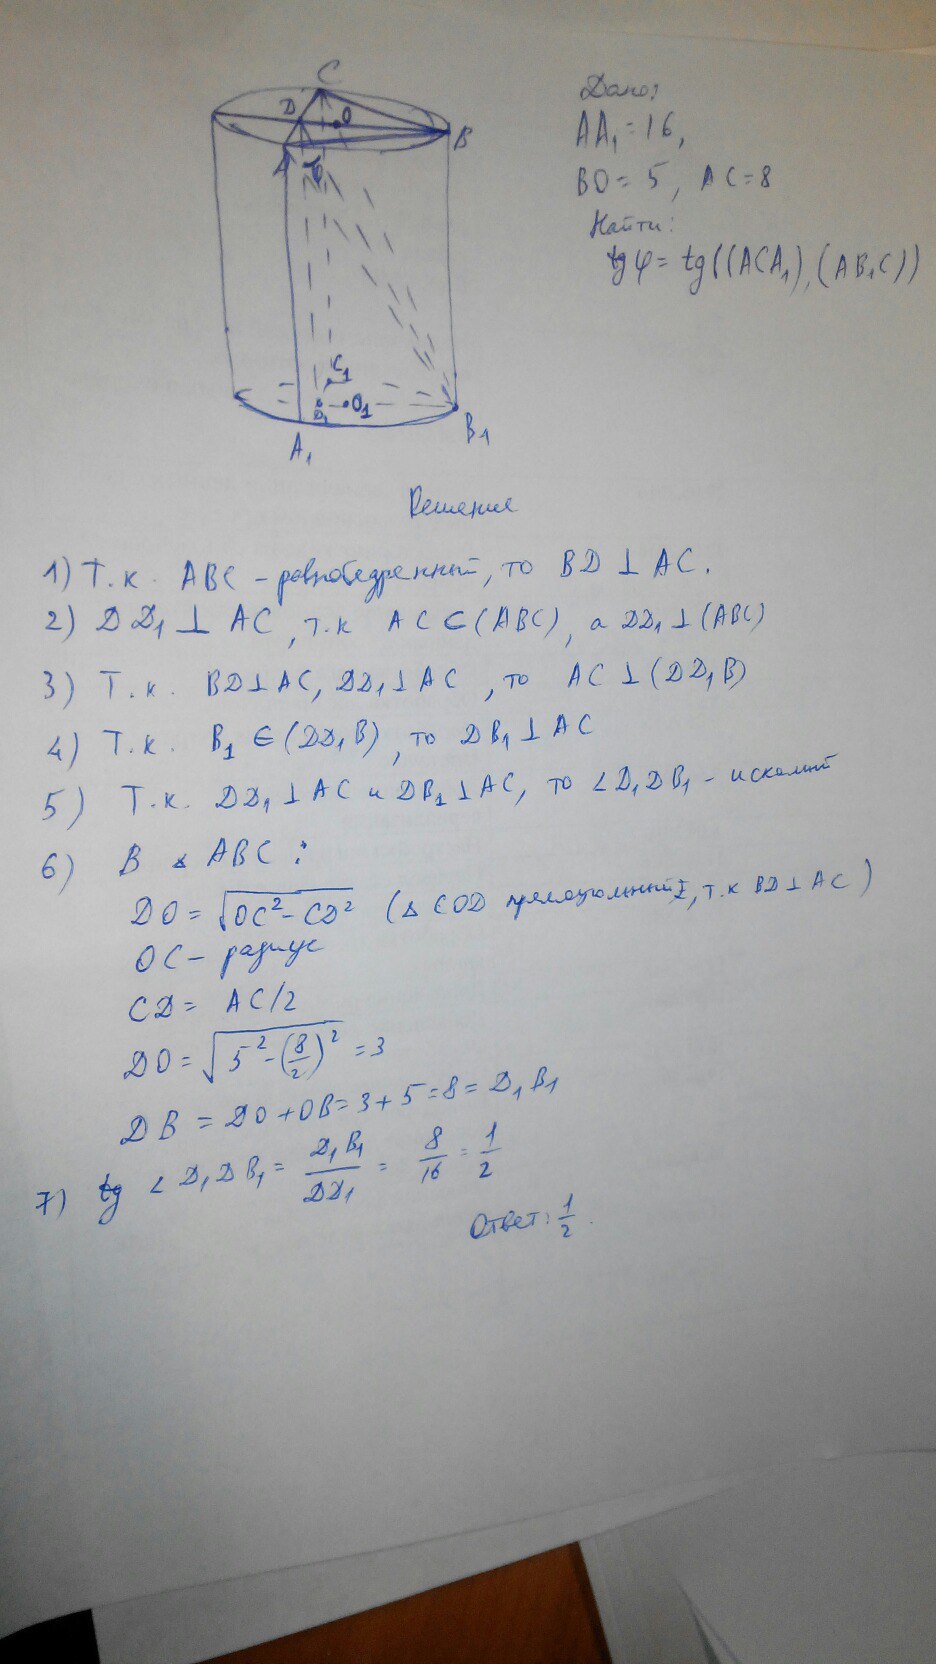 C
D
O
B
A
φ
C₁
D₁
O₁
A₁
B₁
Дано:
AA₁ = 16,
BO = 5, AC = 8
Найти:
tg φ = tg((ACA₁), (AB₁C))
Решение
1) Т.к. ABC - равнобедренный, то BD ⊥ AC.
2) DD₁ ⊥ AC, т.к AC ∈ (ABC), а DD₁ ⊥ (ABC)
3) Т.к. BD ⊥ AC, DD₁ ⊥ AC, то AC ⊥ (DD₁B)
4) Т.к. B₁ ∈ (DD₁B), то DB₁ ⊥ AC
5) Т.к. DD₁ ⊥ AC и DB₁ ⊥ AC, то ∠D₁DB₁ - искомый
6) В △ ABC :
DO = √(OC² - CD²) (△ COD прямоугольный, т.к BD ⊥ AC)
OC - радиус
CD = AC/2
DO = √(5² - (8/2)²) = 3
DB = DO + OB = 3 + 5 = 8 = D₁B₁
7) tg ∠ D₁DB₁ = D₁B₁/DD₁ = 8/16 = 1/2
Ответ: 1/2.